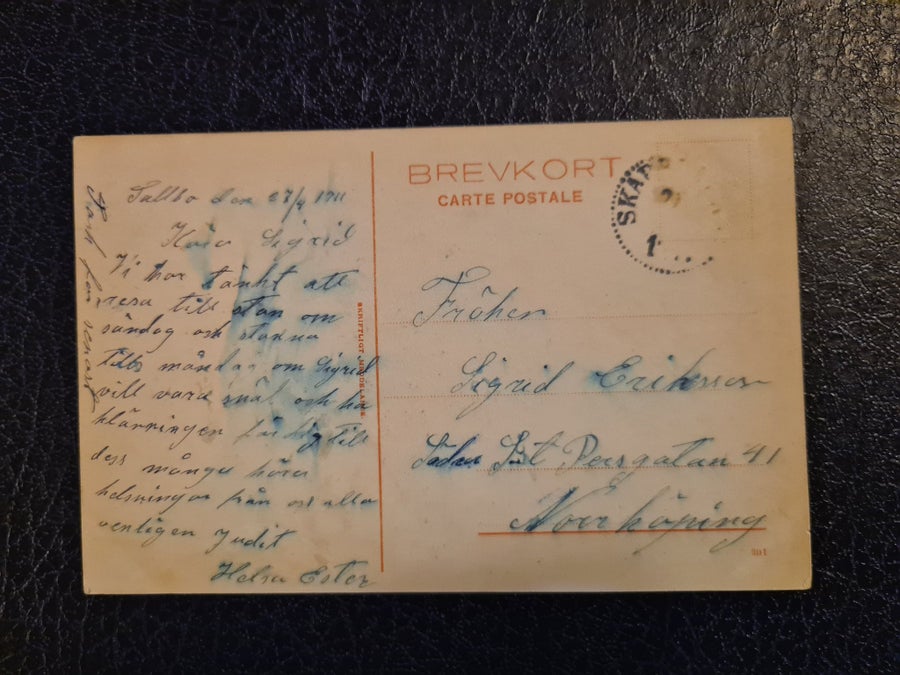 Tack for senast
den 27/4 1911
Sigrid
Vi har tänkt att
resa till stan om
söndag och stanna
tills måndag om Sigrid
vill vara snäl och ha
klänningen färdig till
dess många
helsningar från oss alla
venligen Judit
Helsa Ester
SKRIFTLIGT MEDDELANDE
BREVKORT
CARTE POSTALE
SKÄR
Fröken
Sigrid Eriksson
Södra St Persgatan 41
Norrköping